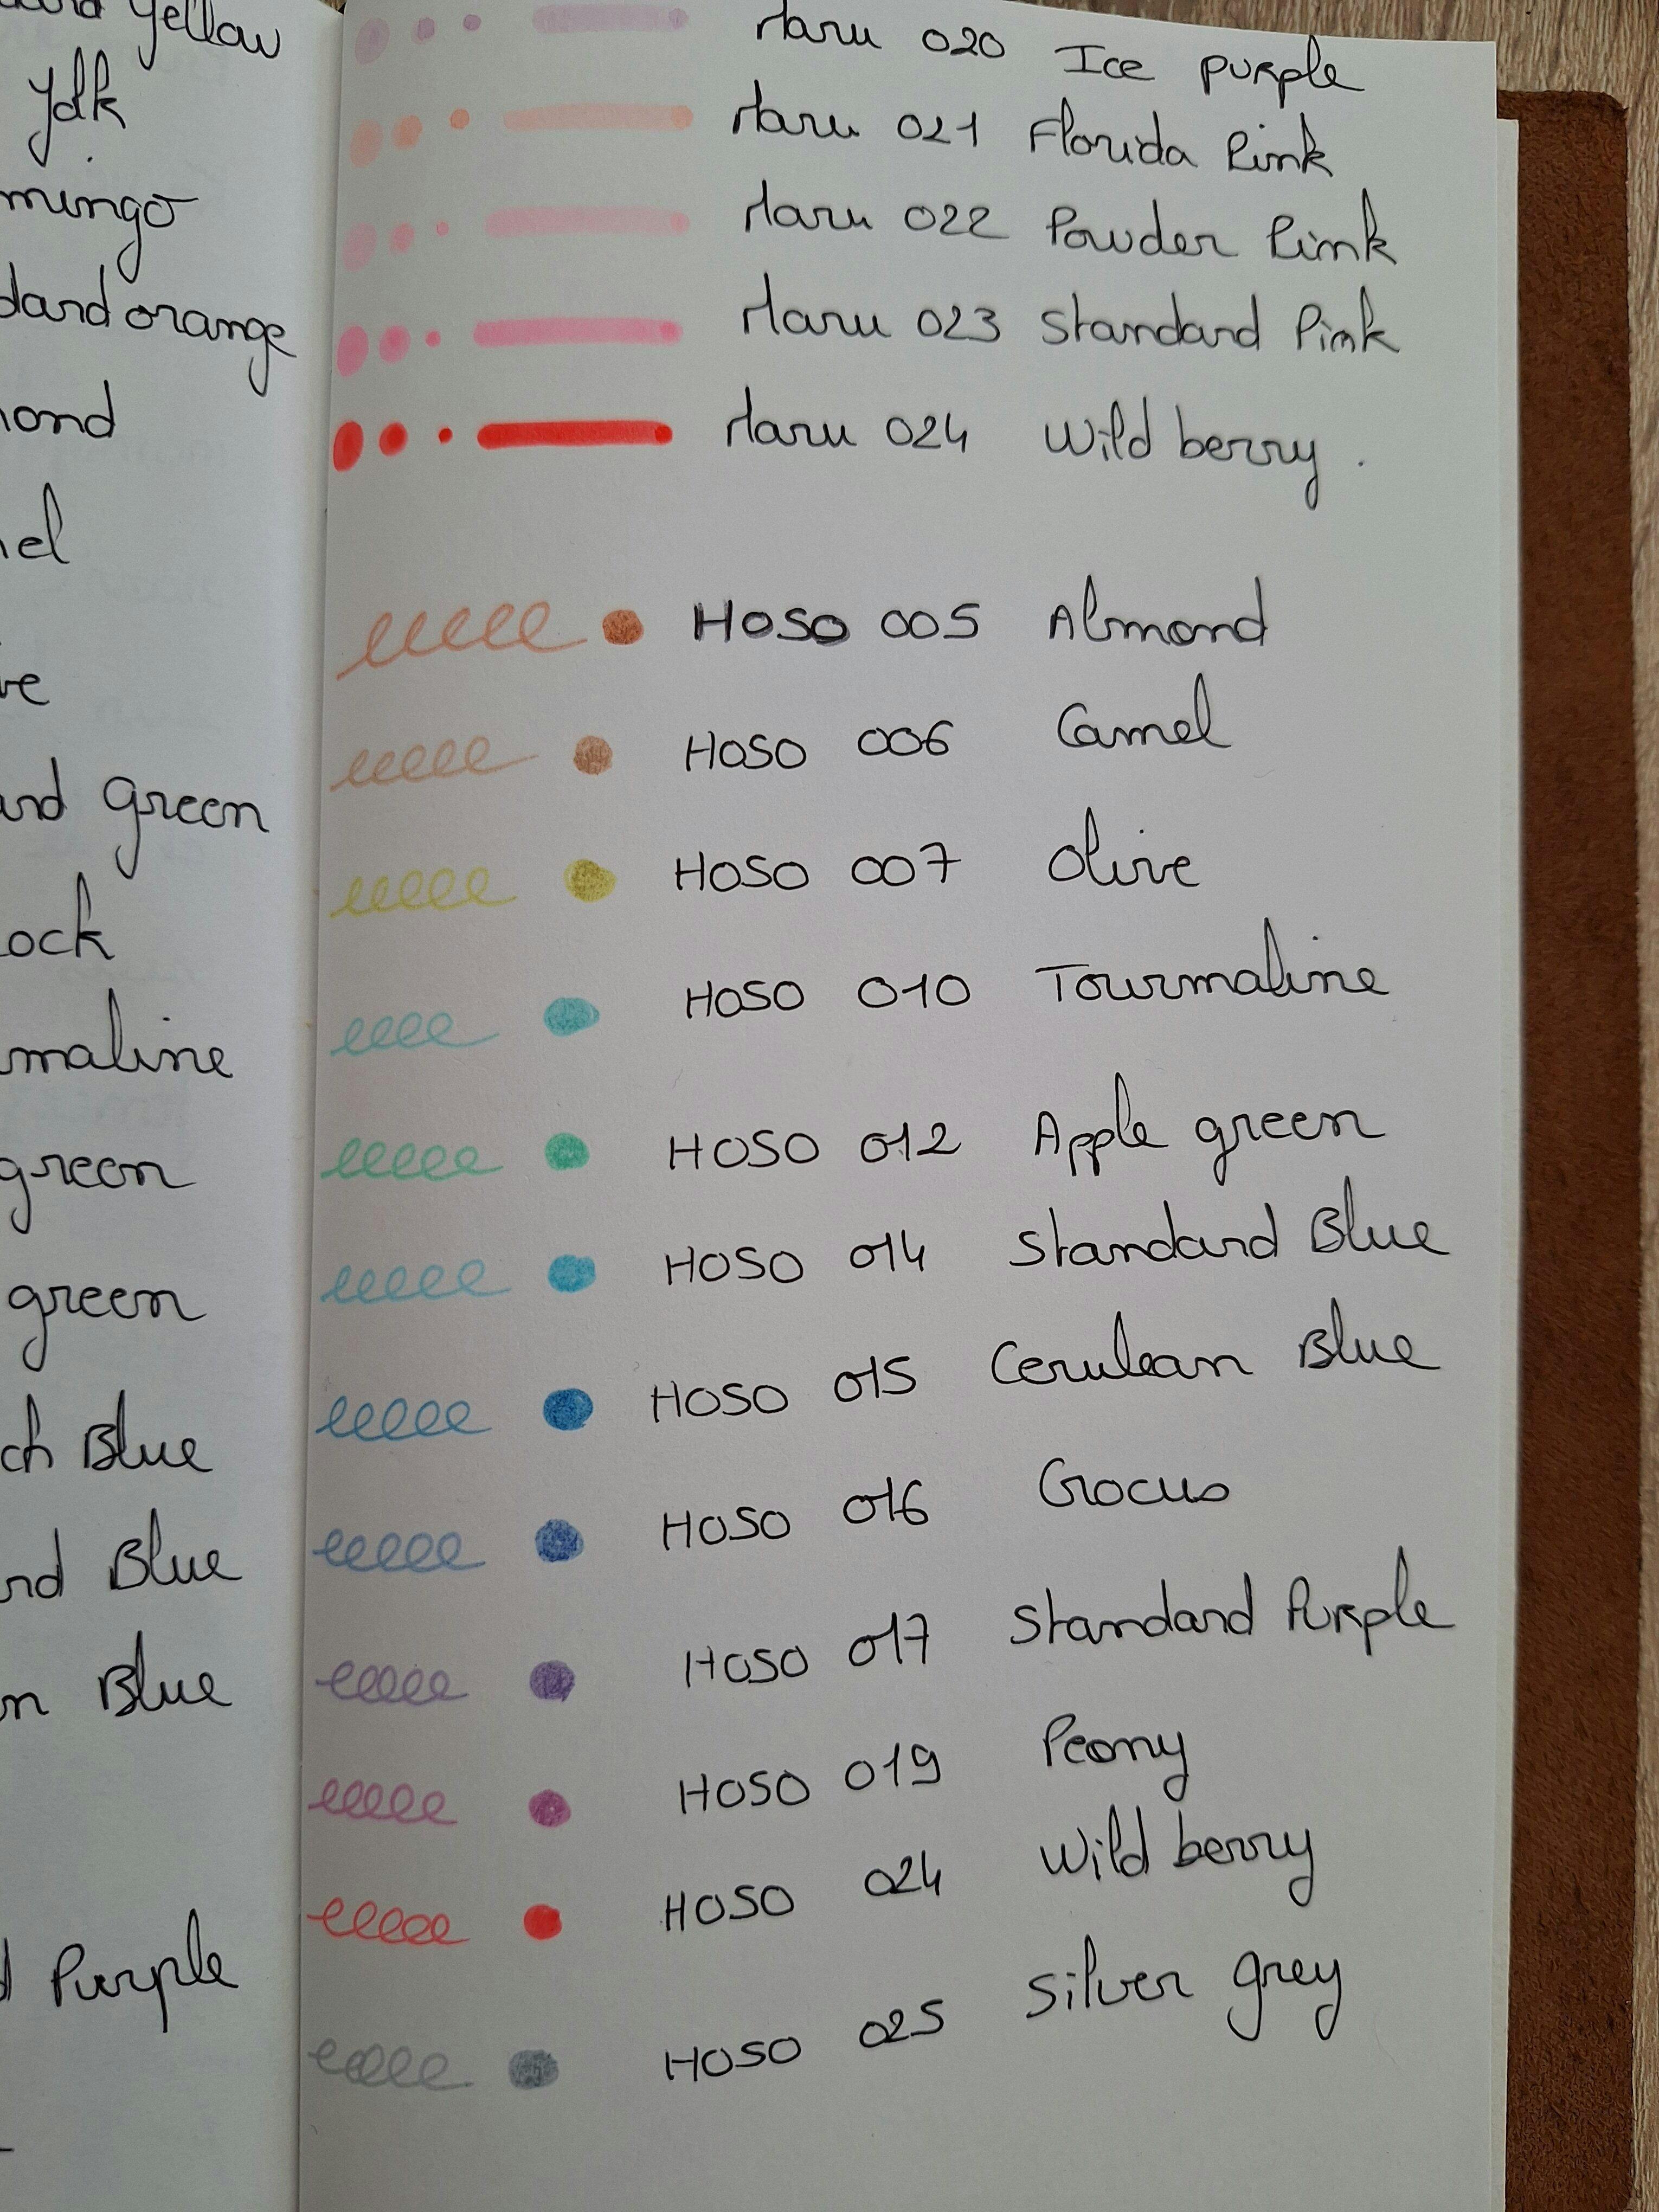 Yellow
Maru 020 Ice purple
Maru 021 Florida Pink
Maru 022 Powder Pink
Maru 023 Standard Pink
Maru 024 Wild berry.
HOSO 005 Almond
HOSO 006 Camel
HOSO 007 Olive
HOSO 010 Tourmaline
HOSO 012 Apple green
HOSO 014 Standard Blue
HOSO 015 Cerulean Blue
HOSO 016 Crocus
HOSO 017 Standard Purple
HOSO 019 Peony
HOSO 024 Wild berry
HOSO 025 Silver grey
mingo
dard orange
ond
el
ve
green
ock
maline
green
green
ch Blue
rd Blue
n Blue
Purple